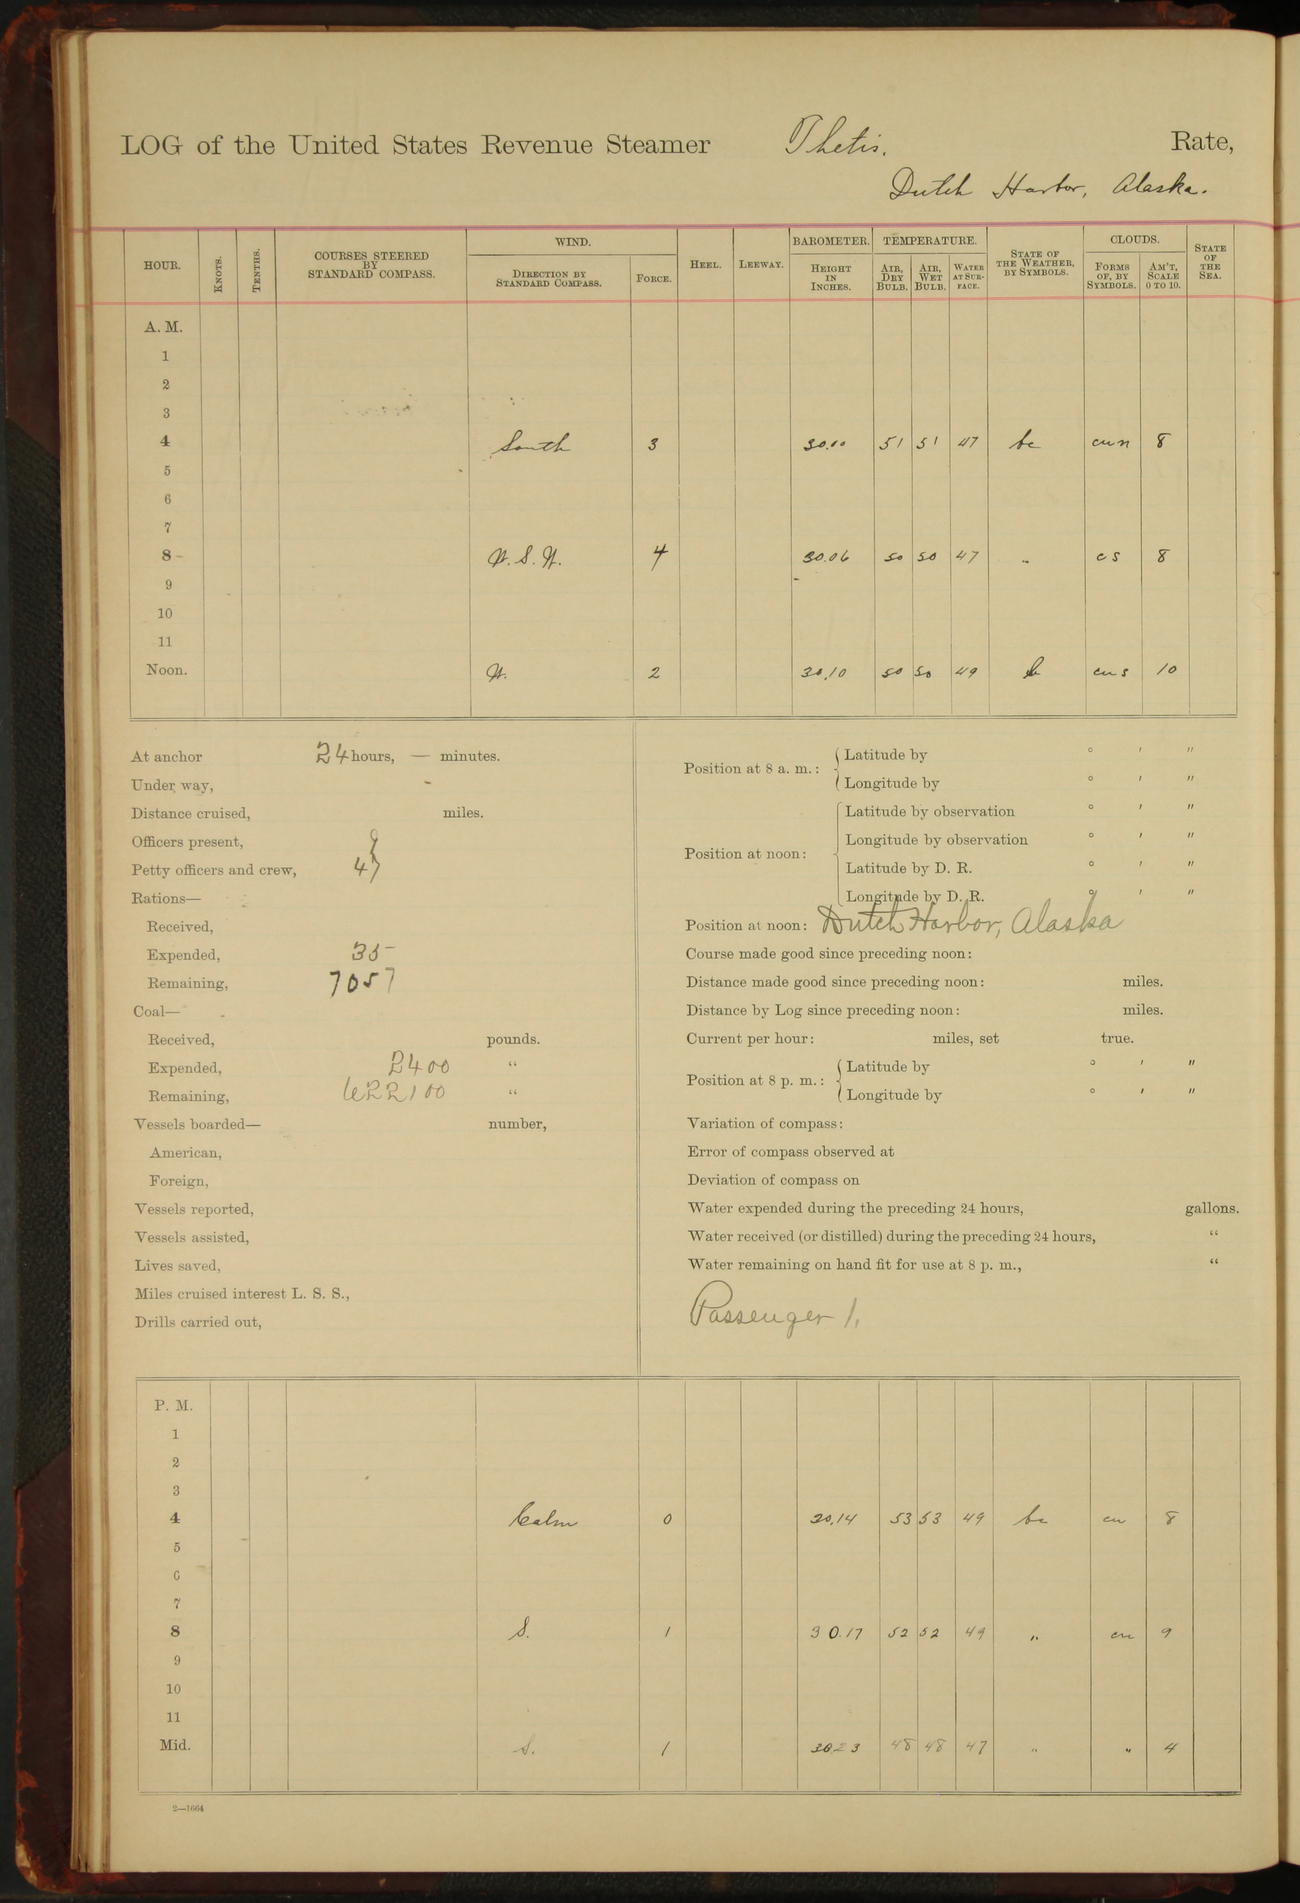 LOG of the United States Revenue Steamer Thetis. Rate,
Dutch Harbor, Alaska.
HOUR. KNOTS. TENTHS. COURSES STEERED BY STANDARD COMPASS. WIND. DIRECTION BY STANDARD COMPASS. FORCE. HEEL. LEEWAY. BAROMETER. HEIGHT IN INCHES. TEMPERATURE. AIR, DRY BULB. AIR, WET BULB. WATER AT SURFACE. STATE OF THE WEATHER, BY SYMBOLS. CLOUDS. FORMS OF, BY SYMBOLS. AM'T, SCALE 0 TO 10. STATE OF THE SEA.
A. M.
1
2
3
4 South 3 30.10 51 51 47 bc cun 8
5
6
7
8 W. S. W. 4 30.06 50 50 47 " cs 8
9
10
11
Noon. W. 2 30.10 50 50 49 cus 10
At anchor 24 hours, — minutes.
Under way, -
Distance cruised, miles.
Officers present, 9
Petty officers and crew,
Rations—
Received,
Expended, 35
Remaining, 7057
Coal—
Received, pounds.
Expended, 2400 "
Remaining, 622100 "
Vessels boarded— number,
American,
Foreign,
Vessels reported,
Vessels assisted,
Lives saved,
Miles cruised interest L. S. S.,
Drills carried out,
Position at 8 a. m.: Latitude by ° ′ ″
Longitude by ° ′ ″
Position at noon: Latitude by observation ° ′ ″
Longitude by observation ° ′ ″
Latitude by D. R. ° ′ ″
Longitude by D. R. ° ′ ″
Position at noon: Dutch Harbor, Alaska
Course made good since preceding noon:
Distance made good since preceding noon: miles.
Distance by Log since preceding noon: miles.
Current per hour: miles, set true.
Position at 8 p. m.: Latitude by ° ′ ″
Longitude by ° ′ ″
Variation of compass:
Error of compass observed at
Deviation of compass on
Water expended during the preceding 24 hours, gallons.
Water received (or distilled) during the preceding 24 hours, "
Water remaining on hand fit for use at 8 p. m., "
Passenger 1.
P. M.
1
2
3
4 Calm 0 30.14 53 53 49 bc cu 8
5
6
7
8 S. 1 30.17 52 52 49 " cu 9
9
10
11
Mid. S. 1 3023 48 48 47 " " 4
2—1664